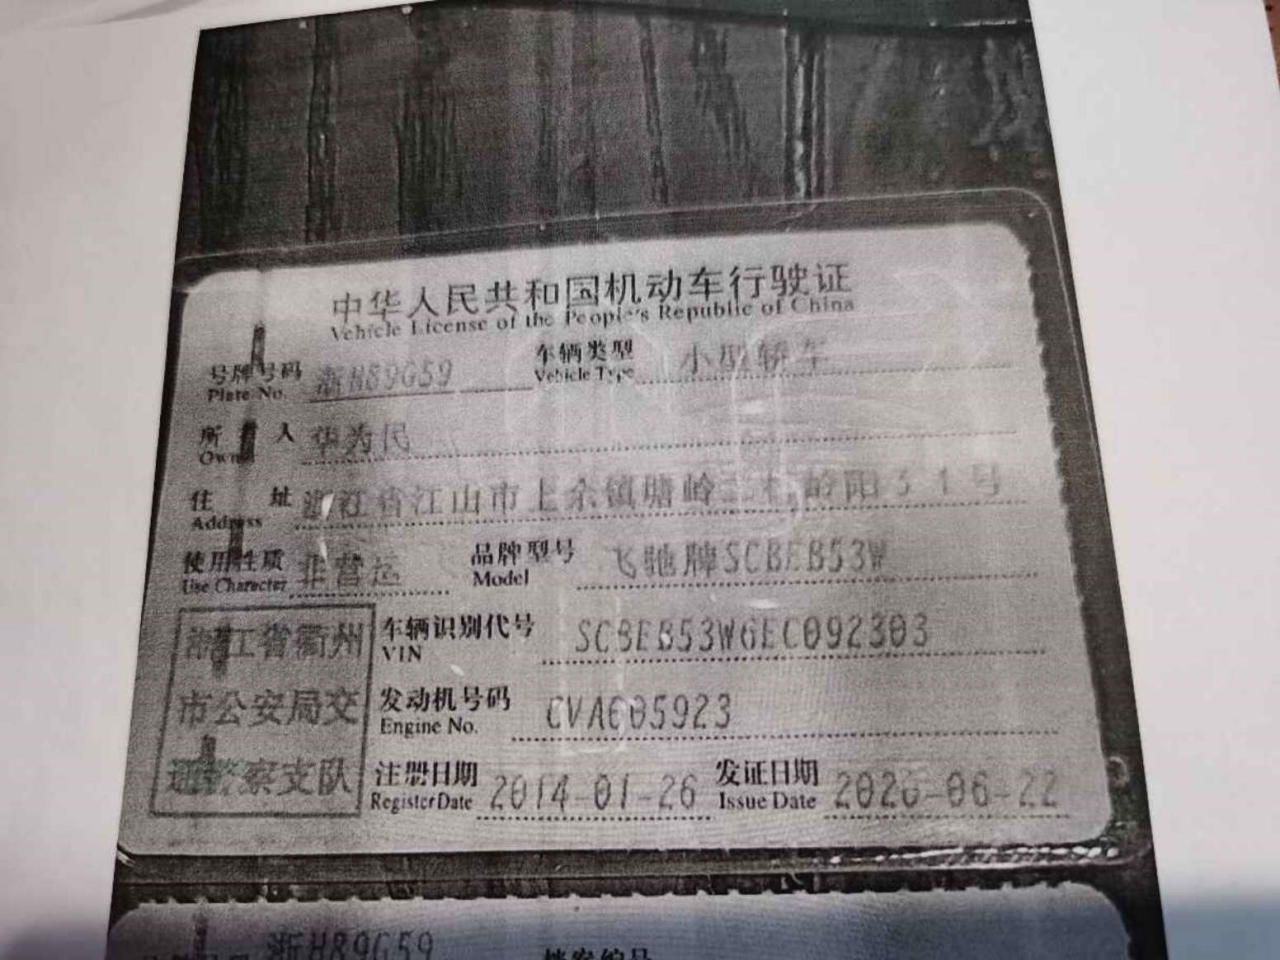 中华人民共和国机动车行驶证
Vehicle License of the People's Republic of China
号牌号码 浙H89G59 车辆类型 小型轿车
Plate No. Vehicle Type
所 人 华为民
Owner
住 址 浙江省江山市上余镇塘岭 岭阳51号
Address
使用性质 非营运 品牌型号 飞驰牌SCBEB53W
Use Character Model
浙江省衢州 车辆识别代号 SCBEB53W6EC092303
VIN
市公安局交 发动机号码 CVA005923
Engine No.
通警察支队 注册日期 2014-01-26 发证日期 2020-06-22
Register Date Issue Date
浙H89G59 档案编号